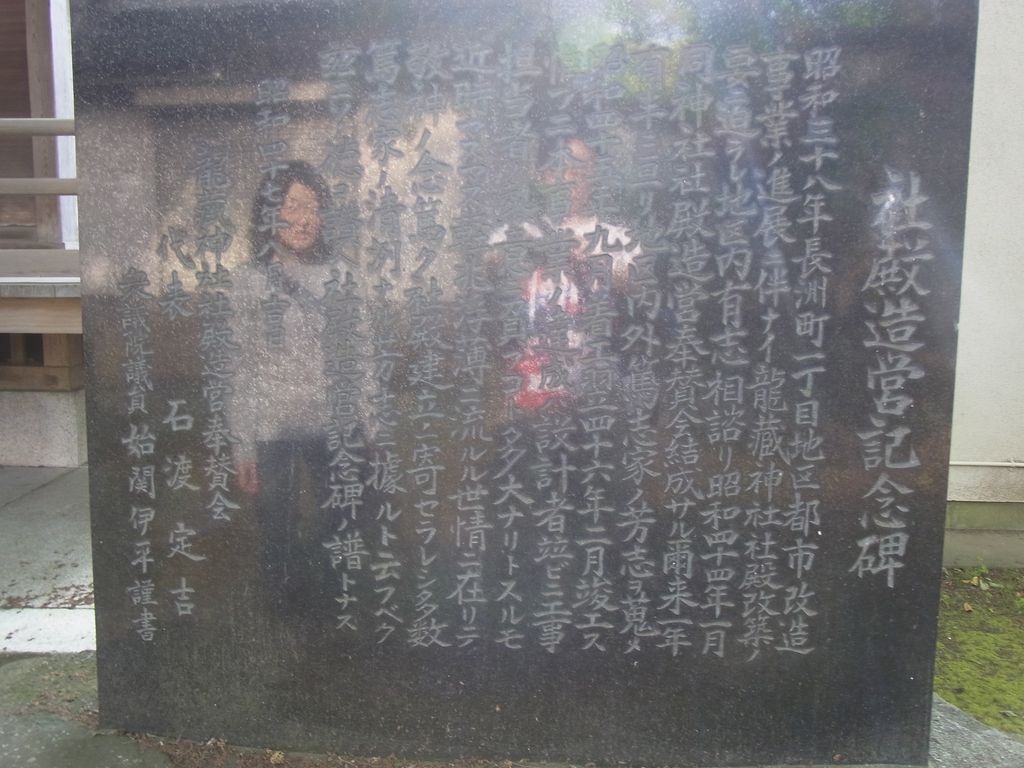 社殿造営記念碑
昭和三十八年長洲町一丁目地区都市改造
事業ノ進展ニ伴ナイ龍蔵神社社殿改築ノ
要迫ラレ地区内有志相諮リ昭和四十四年一月
同神社社殿造営奉賛会結成サル爾来一年
有半ニ亘リ地区内外篤志家ノ芳志ヲ蒐メ
九月着工翌四十六年二月竣工ス
設計者並ビニ工事
担当者 大ナリトスルモ
近時 薄ニ流ルル世情ニ在リテ
敬神ノ念篤ク社殿建立ニ寄セラレシ多数
篤志家ノ 芳志ニ據ルト云フベク
社殿造営記念碑ノ譜トナス
昭和四十七年八月吉日
龍蔵神社社殿造営奉賛会
代表 石渡定吉
衆議院議員 始関伊平謹書